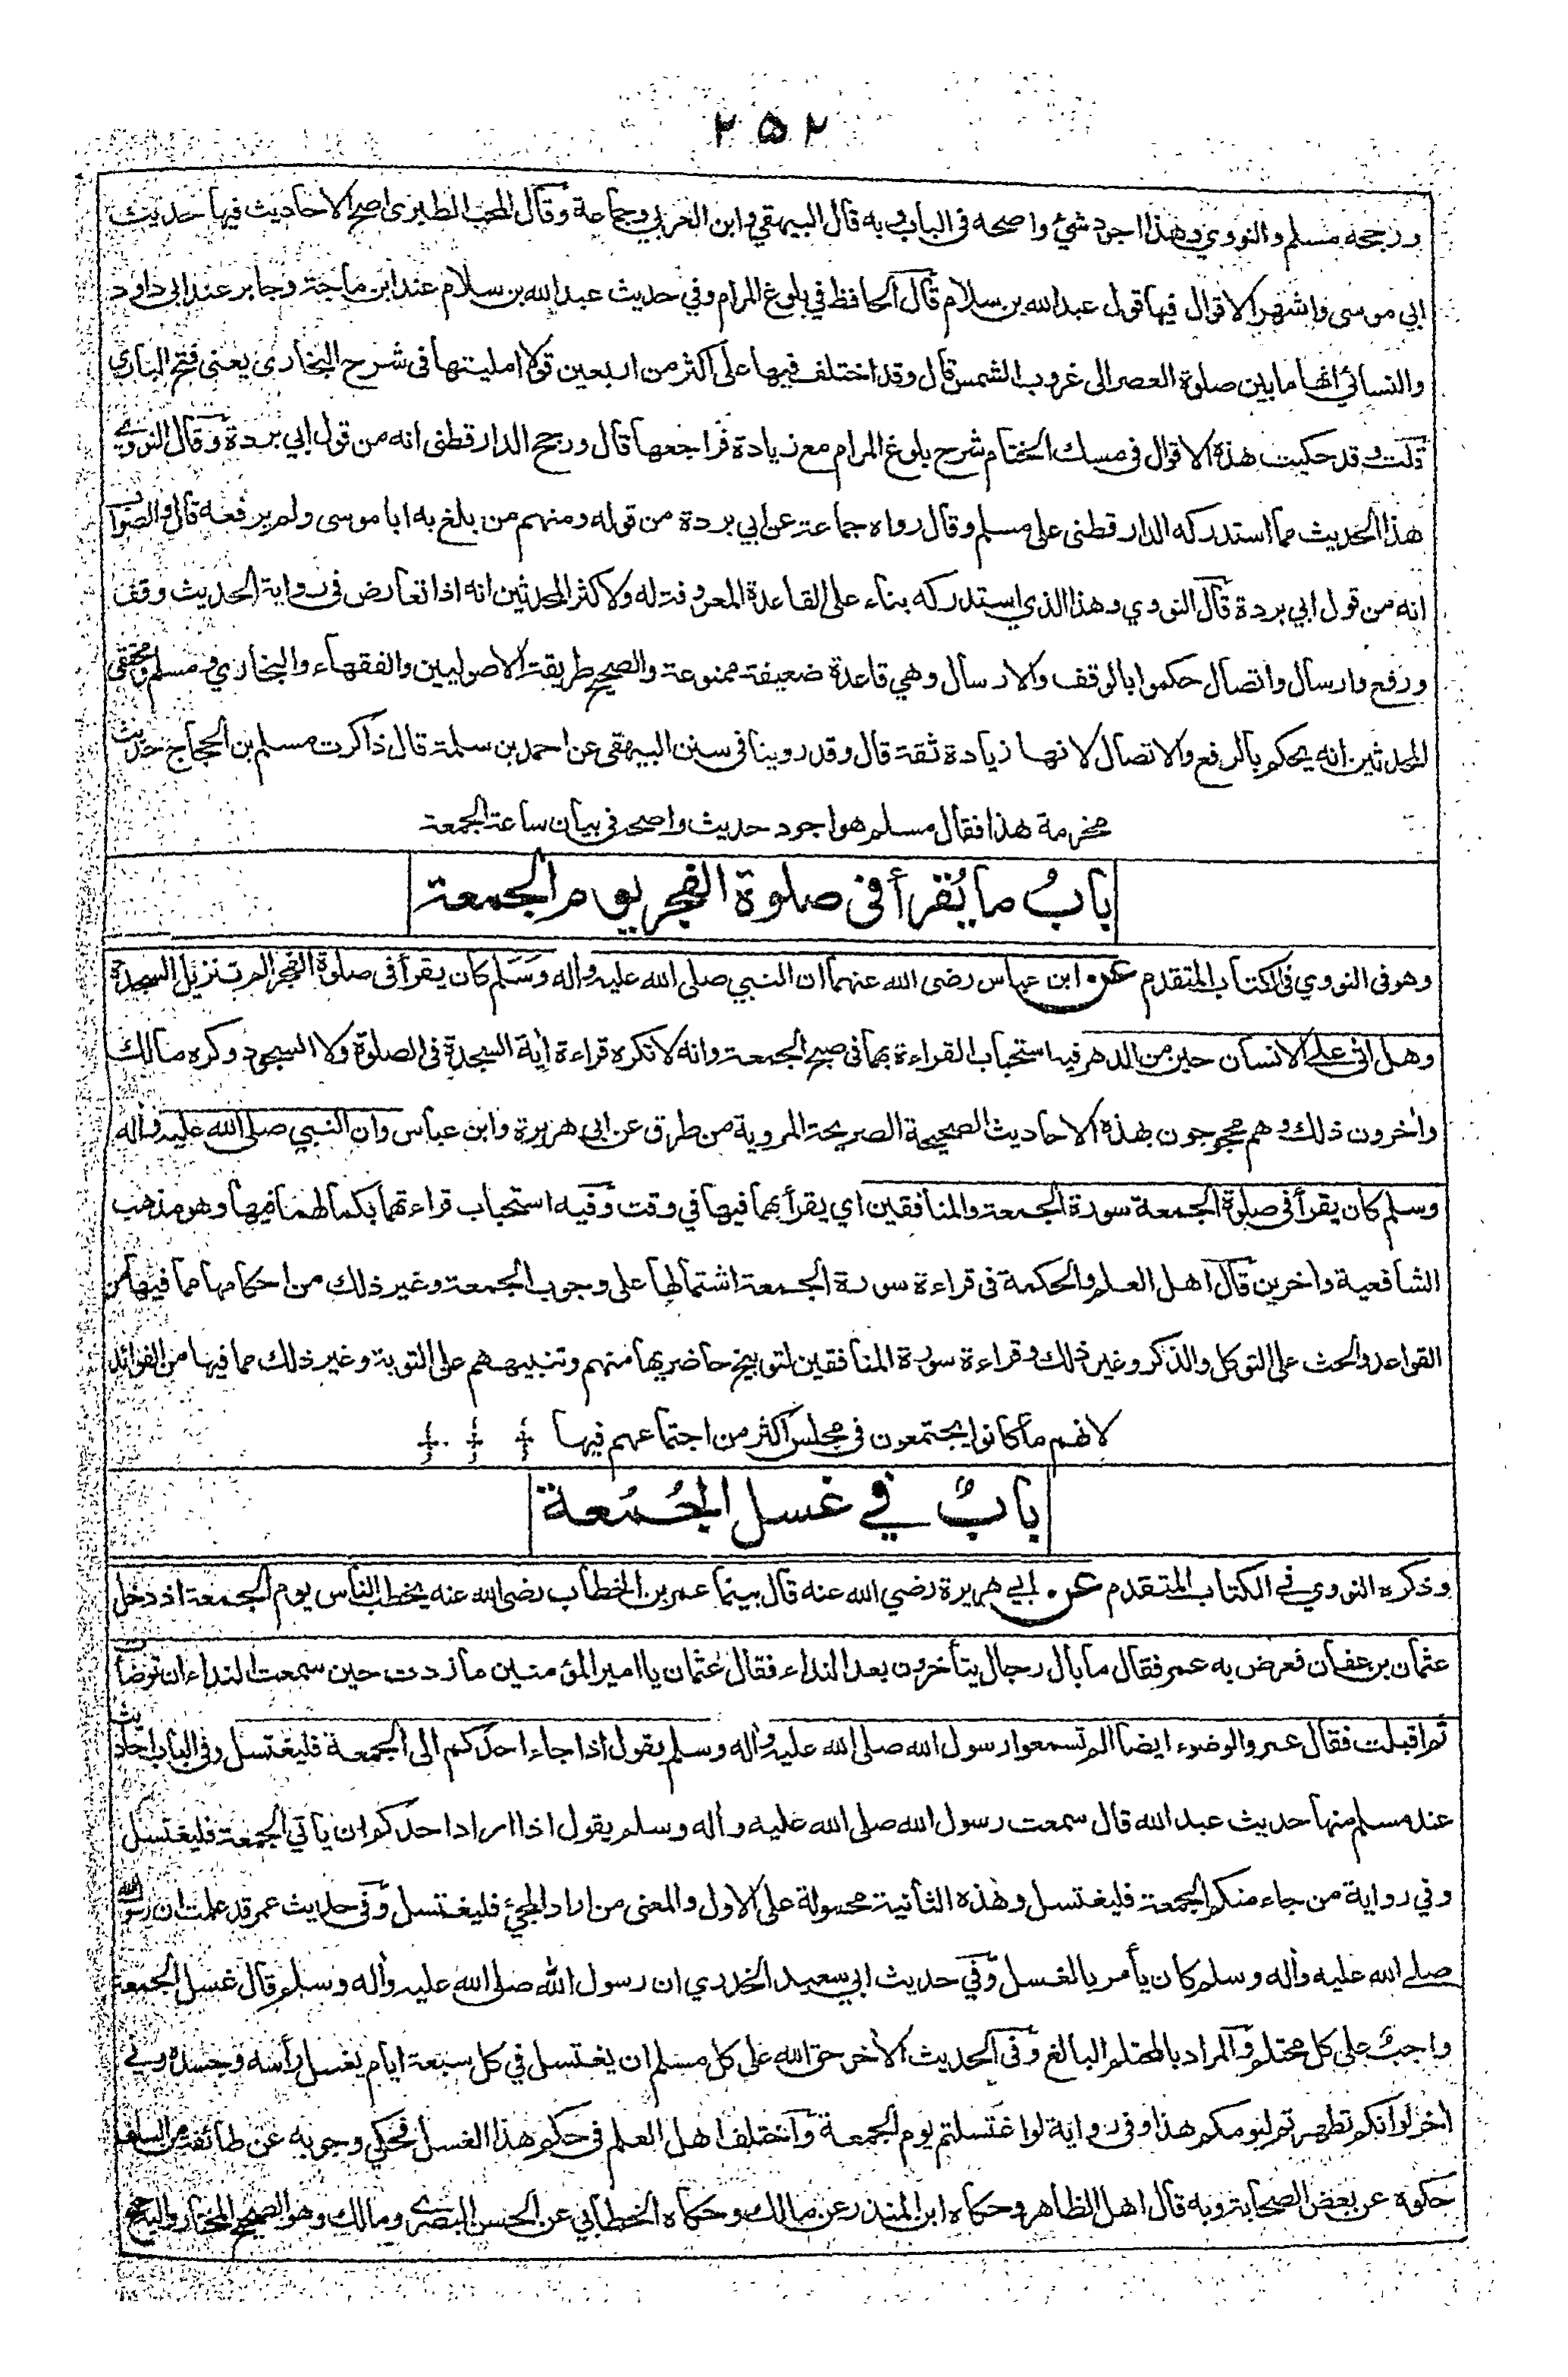 ٢٥٢
ورجحه مسلم والنووي وهذا اجود شئ واصحه فى الباب وبه قال البيهقي وابن العربي وجماعة وقال المحب الطبرى اصح الاحاديث فيها حديث
ابي موسى واشهر الاقوال فيها قول عبد الله بن سلام قال الحافظ في بلوغ المرام وفي حديث عبد الله بن سلام عند ابن ماجة وجابر عند ابى داود
والنسائي انها ما بين صلوة العصر الى غروب الشمس قال وقد اختلف فيها على اكثر من اربعين قولا امليتها فى شرح البخارى يعنى فتح البارى
قلت وقد حكيت هذه الاقوال فى مسك الختام شرح بلوغ المرام مع زيادة فراجعها قال ورجح الدار قطنى انه من قول ابي بردة وقال النووي
هذا الحديث مما استدركه الدار قطنى على مسلم وقال رواه جماعة عن ابي بردة من قوله ومنهم من بلغ به ابا موسى ولم يرفعه قال والصواب
انه من قول ابي بردة قال النووي وهذا الذي استدركه بناء على القاعدة المعروفة له ولاكثر المحدثين انه اذا تعارض فى رواية الحديث وقف
ورفع وارسال واتصال حكموا بالوقف والارسال وهي قاعدة ضعيفة ممنوعة والصحيح طريقة الاصوليين والفقهاء والبخاري ومسلم ومحققى
المحدثين انه يحكم بالرفع والاتصال لانها زيادة ثقة قال وقد روينا فى سنن البيهقى عن احمد بن سلمة قال ذاكرت مسلم بن الحجاج حديث
مخرمة هذا فقال مسلم هو اجود حديث واصحه فى بيان ساعة الجمعة
بابُ ما يُقرأ فى صلوة الفجر يوم الجمعة
وهو فى النووي فى الكتاب المتقدم عن ابن عباس رضى الله عنهما ان النبي صلى الله عليه وأله وسَلم كان يقرأ فى صلوة الفجر الم تنزيل السجدة
وهل اتى على الانسان حين من الدهر فيه استحباب القراءة بهما فى صبح الجمعة وانه لا تكره قراءة أية السجدة فى الصلوة ولا السجود وكره مالك
وأخرون ذلك وهم محجوجون بهذه الاحاديث الصحيحة الصريحة المروية من طرق عن ابى هريرة وابن عباس وان النبي صلى الله عليه وأله
وسلم كان يقرأ فى صلوة الجمعة سورة الجمعة والمنافقين اي يقرأ بهما فيها في وقت وفيه استحباب قراءتهما بكمالهما فيها وهو مذهب
الشافعية واخرين قال اهل العلم والحكمة فى قراءة سورة الجمعة اشتمالها على وجوب الجمعة وغير ذلك من احكامها مما فيها من
القواعد والحث على التوكل والذكر وغير ذلك وقراءة سورة المنافقين لتوبيخ حاضريها منهم وتنبيههم على التوبة وغير ذلك مما فيها من الفوائد
لانهم ما كانوا يجتمعون فى مجلس اكثر من اجتماعهم فيها
بابٌ في غسل الجُمُعة
وذكره النووي في الكتاب المتقدم عن ابي هريرة رضي الله عنه قال بينما عمر بن الخطاب رضى الله عنه يخطب الناس يوم الجمعة اذ دخل
عثمان بن عفان فعرض به عمر فقال ما بال رجال يتأخرون بعد النداء فقال عثمان يا امير المؤمنين ما زدت حين سمعت النداء ان توضأت
ثم اقبلت فقال عمر والوضوء ايضا الم تسمعوا رسول الله صلى الله عليه وأله وسلم يقول اذا جاء احدكم الى الجمعة فليغتسل وفى الباب احاديث
عند مسلم منها حديث عبد الله قال سمعت رسول الله صلى الله عليه وأله وسلم يقول اذا اراد احدكم ان يأتي الجمعة فليغتسل
وفي رواية من جاء منكم الجمعة فليغتسل وهذه الثانية محمولة على الاول والمعنى من اراد المجئ فليغتسل وفى حديث عمر قد علمت ان رسول الله
صلے الله عليه وأله وسلم كان يأمر بالغسل وفي حديث ابي سعيد الخدري ان رسول الله صلى الله عليه وأله وسلم قال غسل الجمعة
واجبٌ على كل محتلم والمراد بالمحتلم البالغ وفى الحديث الأخر حق الله على كل مسلم ان يغتسل في كل سبعة ايام يغسل رأسه وجسده وفي
أخر لو انكم تطهرتم ليومكم هذا وفى رواية لو اغتسلتم يوم الجمعة واختلف اهل العلم فى حكم هذا الغسل فحكي وجوبه عن طائفة من السلف
حكوه عن بعض الصحابة وبه قال اهل الظاهر وحكاه ابن المنذر عن مالك وحكاه الخطابي عن الحسن البصرى ومالك وهو الصحيح المختار